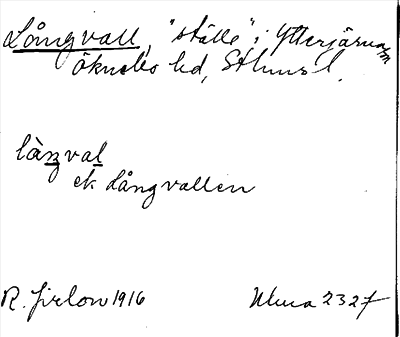 Långvall, "ställe" i Ytterjärna sn
Öknebo hd, Sthms l.
làŋval
ek Långvallen
R. Jirlow 1916 Ulma 2327